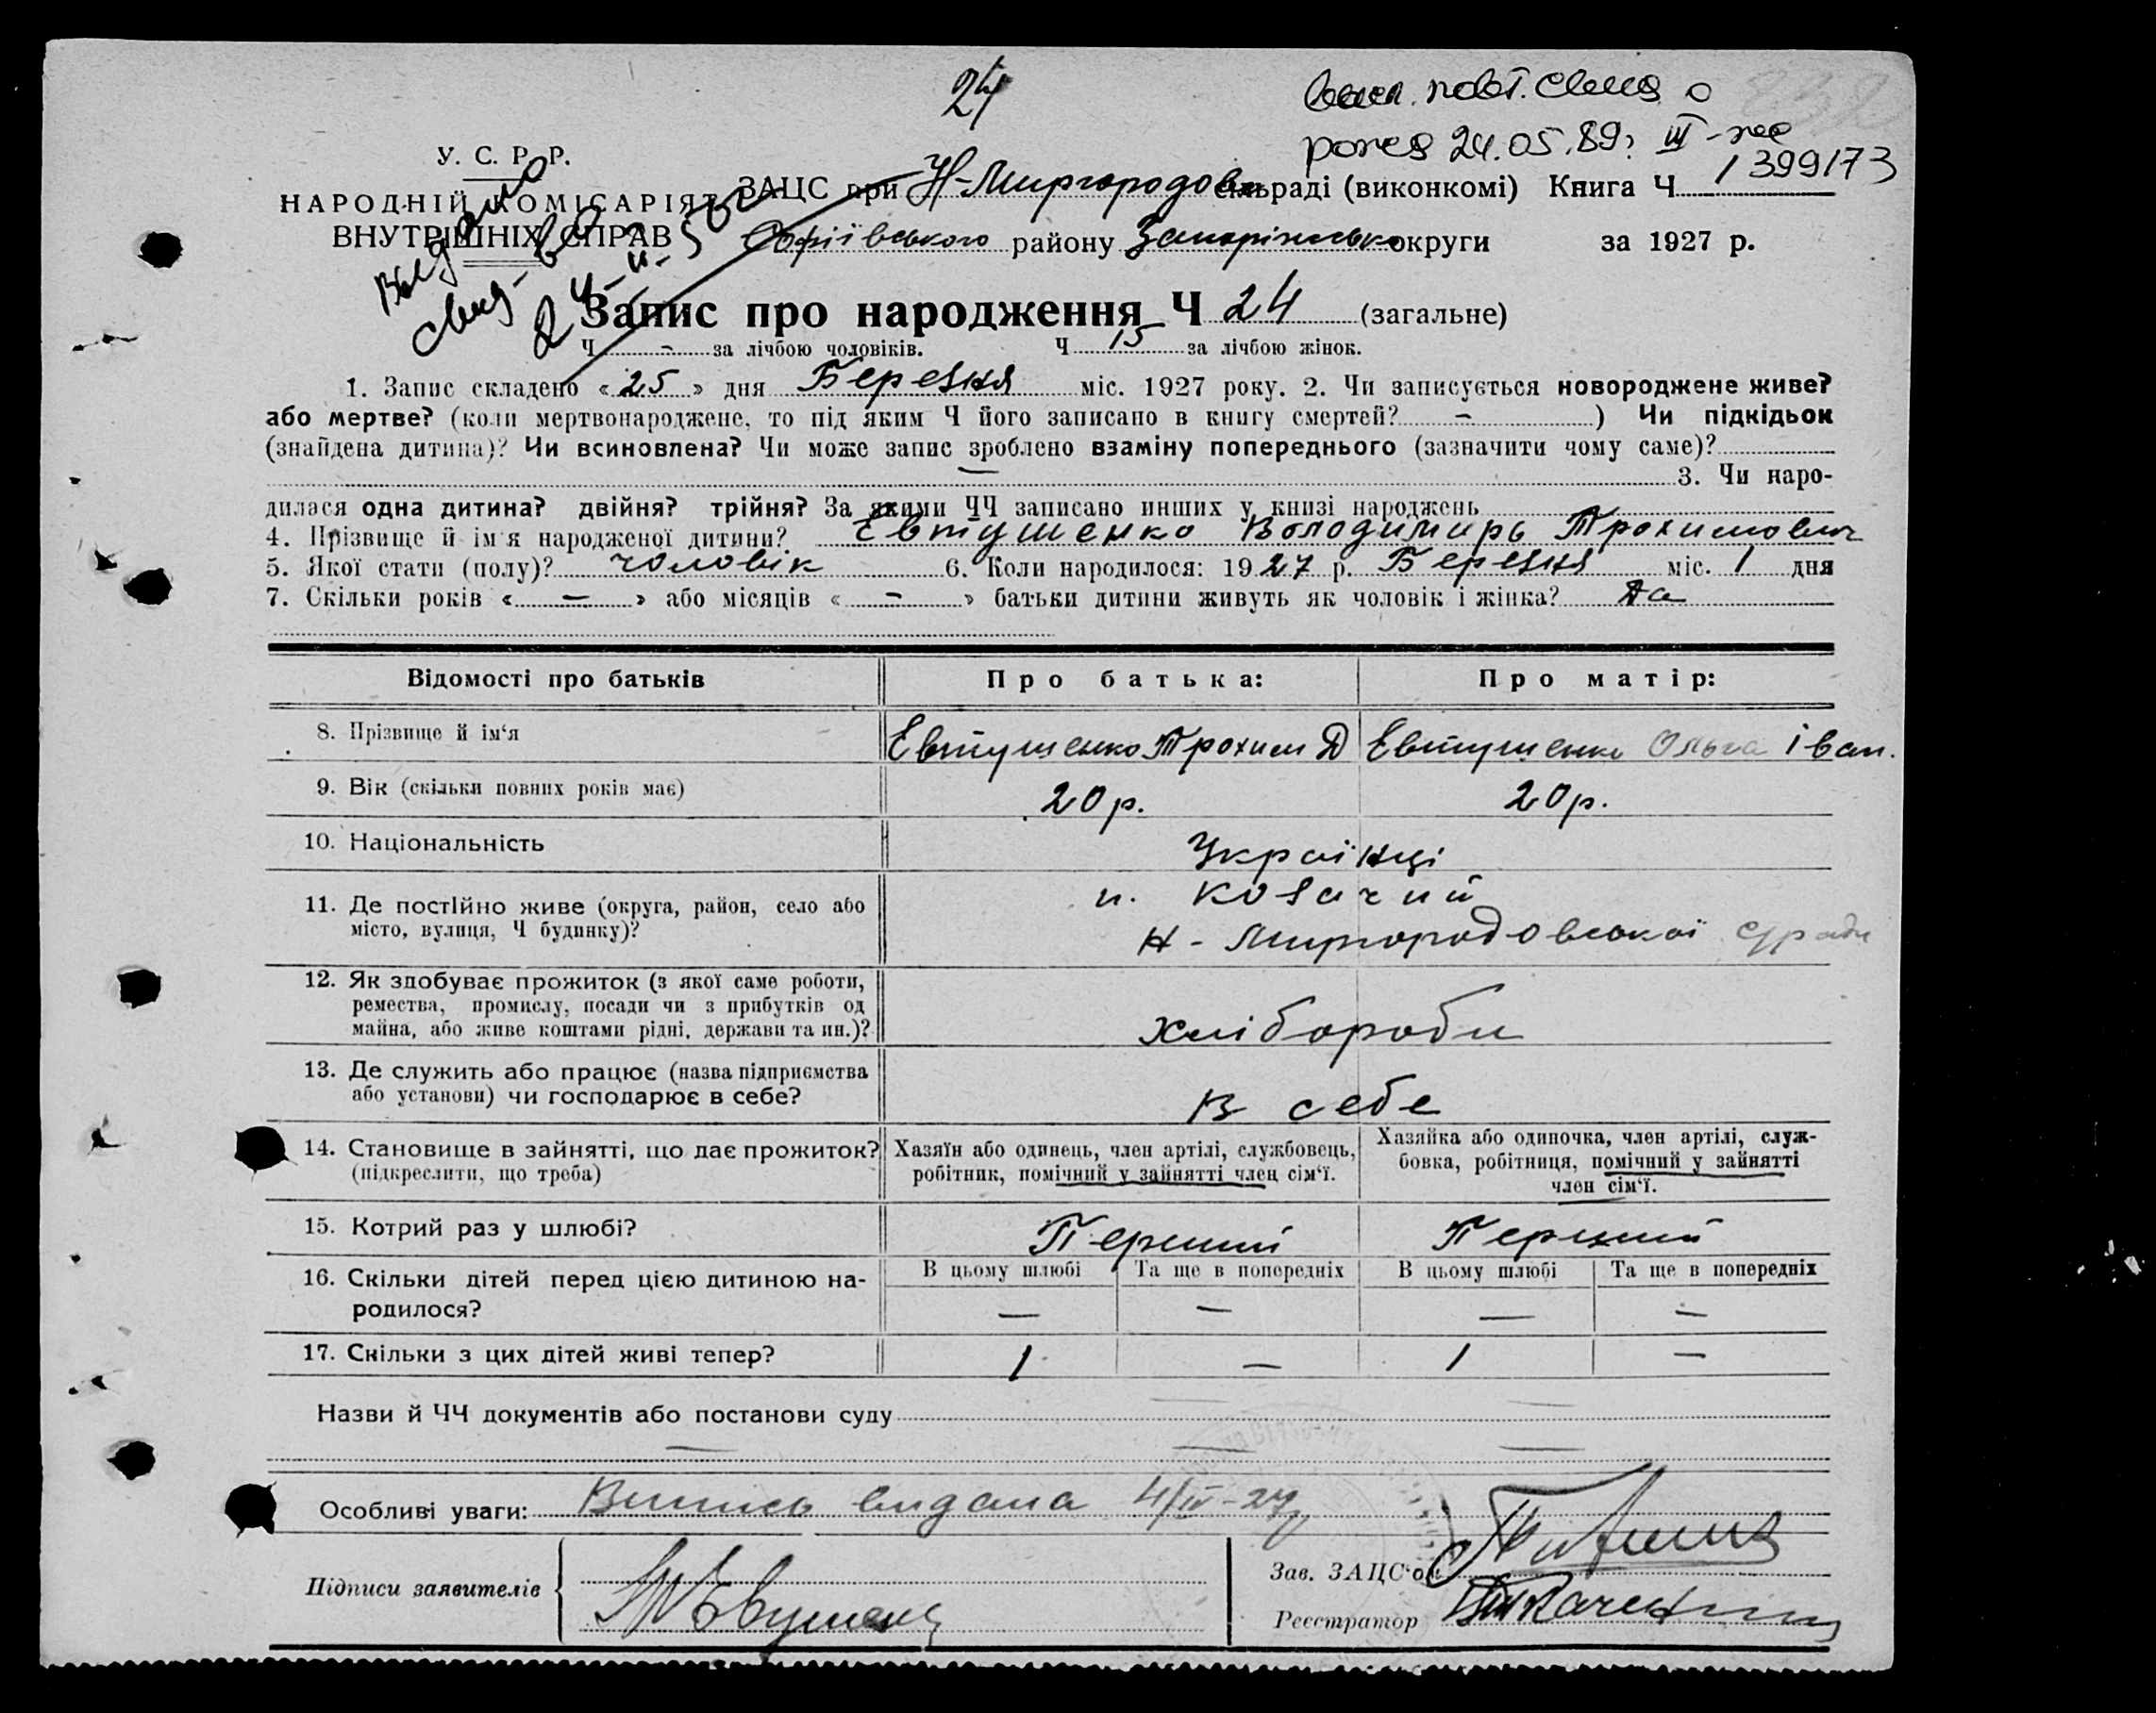 24
повт. свид о
рожд 24.05.89г. III-
1399173
У. С. Р. Р.
НАРОДНІЙ КОМІСАРІЯТ
ВНУТРІШНІХ СПРАВ
Выдано
свид-во
ЗАЦС при Н-Миргородовс сільраді (виконкомі) Книга Ч
Софіївського району Запоріжсько округи за 1927 р.
Запис про народження Ч 24 (загальне)
Ч - за лічбою чоловіків. Ч 15 за лічбою жінок.
1. Запис складено «25» дня Березня міс. 1927 року. 2. Чи записується новороджене живе?
або мертве? (коли мертвонароджене, то під яким Ч його записано в книгу смертей? - ) Чи підкідьок
(знайдена дитина)? Чи всиновлена? Чи може запис зроблено взаміну попереднього (зазначити чому саме)?
— 3. Чи наро-
дилася одна дитина? двійня? трійня? За якими ЧЧ записано инших у книзі народжень
4. Прізвище й ім'я народженої дитини? Евтушенко Володимирь Трохимович
5. Якої стати (полу)? чоловік 6. Коли народилося: 1927 р. Березня міс. 1 дня
7. Скільки років « — » або місяців « - » батьки дитини живуть як чоловік і жінка? Да
Відомості про батьків Про батька: Про матір:
8. Прізвище й ім'я Евтушенко Трохим Д Евтушенко Ольга Іван.
9. Вік (скільки повних років має) 20 р. 20 р.
10. Національність Українці
11. Де постійно живе (округа, район, село або
місто, вулиця, Ч будинку)?
х. Козачий
Н-Миргородовської с/ради
12. Як здобуває прожиток (з якої саме роботи,
ремества, промислу, посади чи з прибутків од
майна, або живе коштами рідні, держави та ин.)?
хлібороби
13. Де служить або працює (назва підприємства
або установи) чи господарює в себе?
В себе
14. Становище в зайнятті, що дає прожиток?
(підкреслити, що треба)
Хазяїн або одинець, член артілі, службовець,
робітник, помічний у зайнятті член сім'ї.
Хазяйка або одиночка, член артілі, служ-
бовка, робітниця, помічний у зайнятті
член сім'ї.
15. Котрий раз у шлюбі? Перший Перший
16. Скільки дітей перед цією дитиною на-
родилося?
В цьому шлюбі Та ще в попередніх В цьому шлюбі Та ще в попередніх
— — — —
17. Скільки з цих дітей живі тепер? 1 — 1 —
Назви й ЧЧ документів або постанови суду
Особливі уваги: Випись видана 4/IV-27
Підписи заявителів
Зав. ЗАЦС'ом
Реєстратор